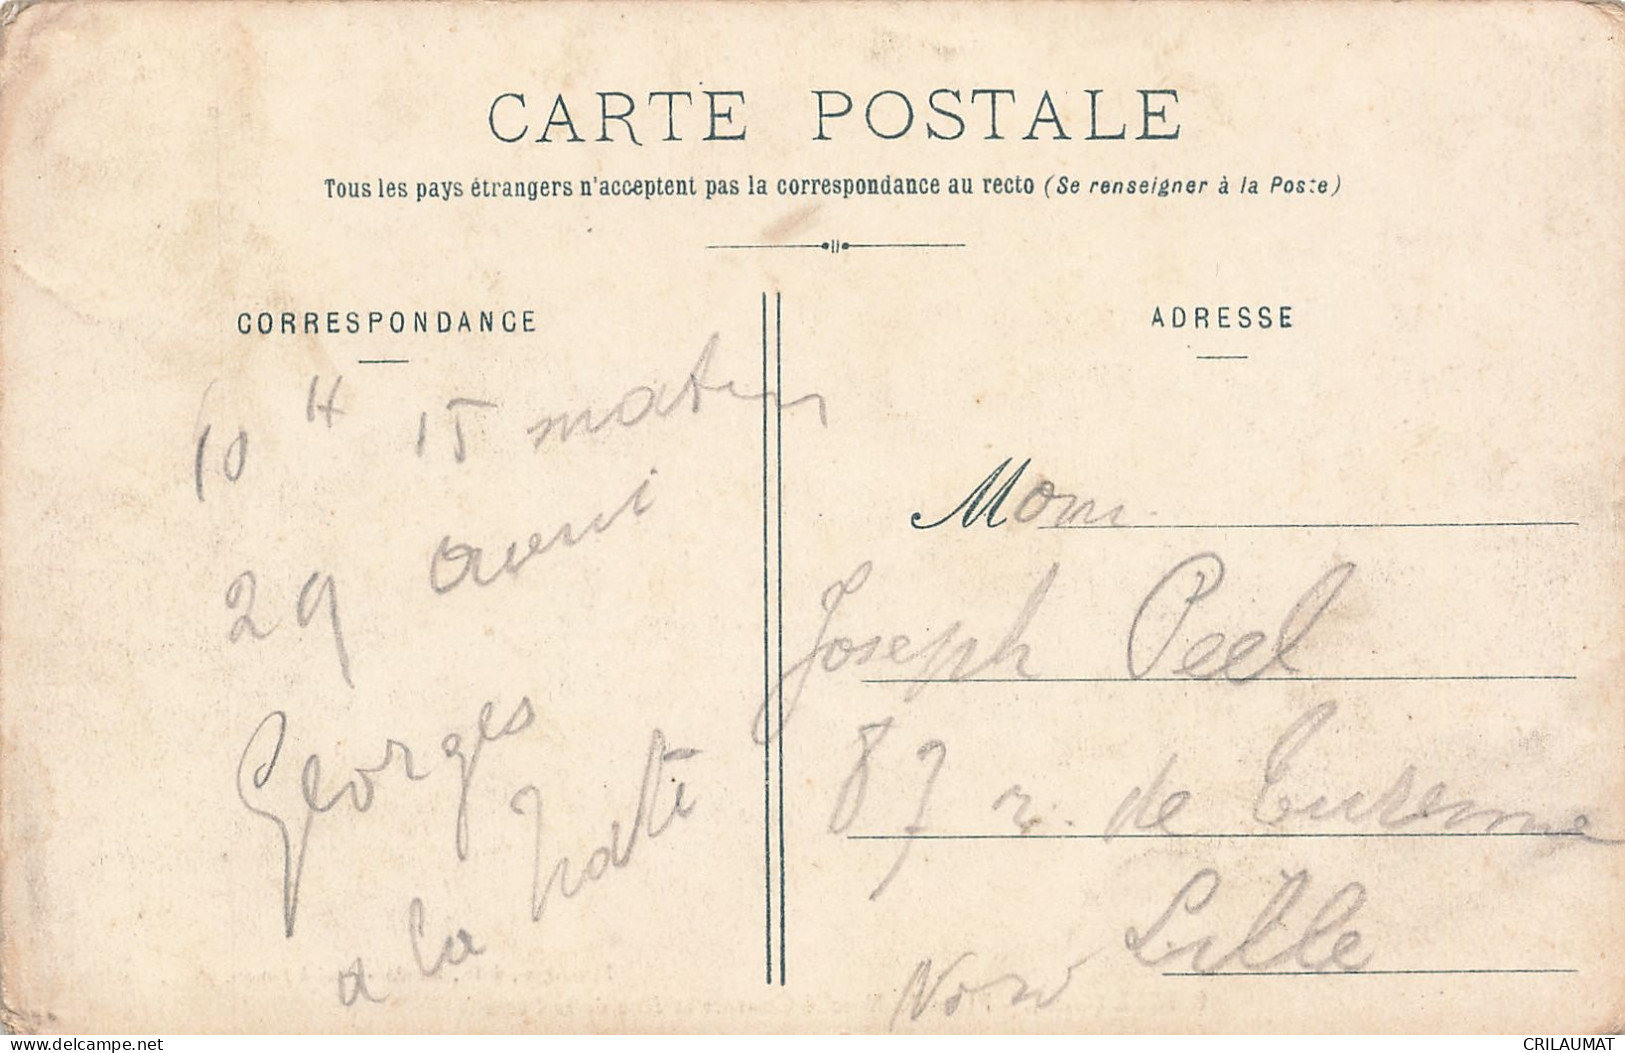 CARTE POSTALE
Tous les pays étrangers n'acceptent pas la correspondance au recto (Se renseigner à la Poste)
CORRESPONDANCE
10 H 15 matin
29
Georges
a la hate
ADRESSE
M
Joseph Peel
87 r. de Turenne
Lille
Nord
Delcampe.net
CRILAUMAT